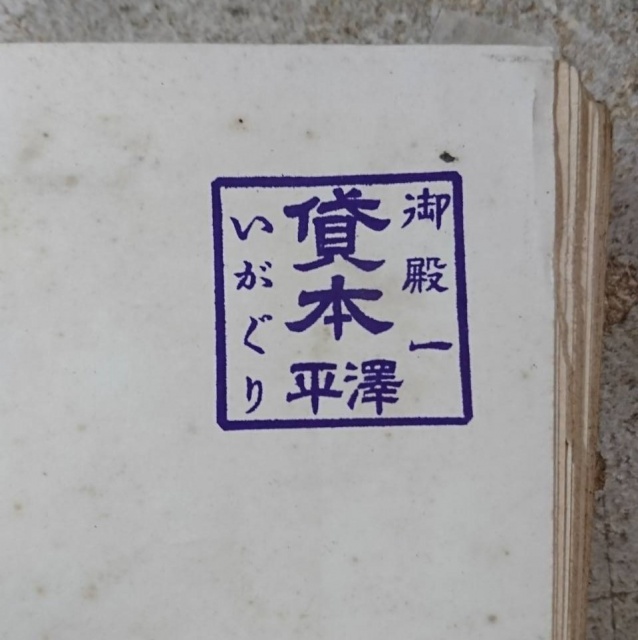 御殿一
貸本
平澤
いがぐり